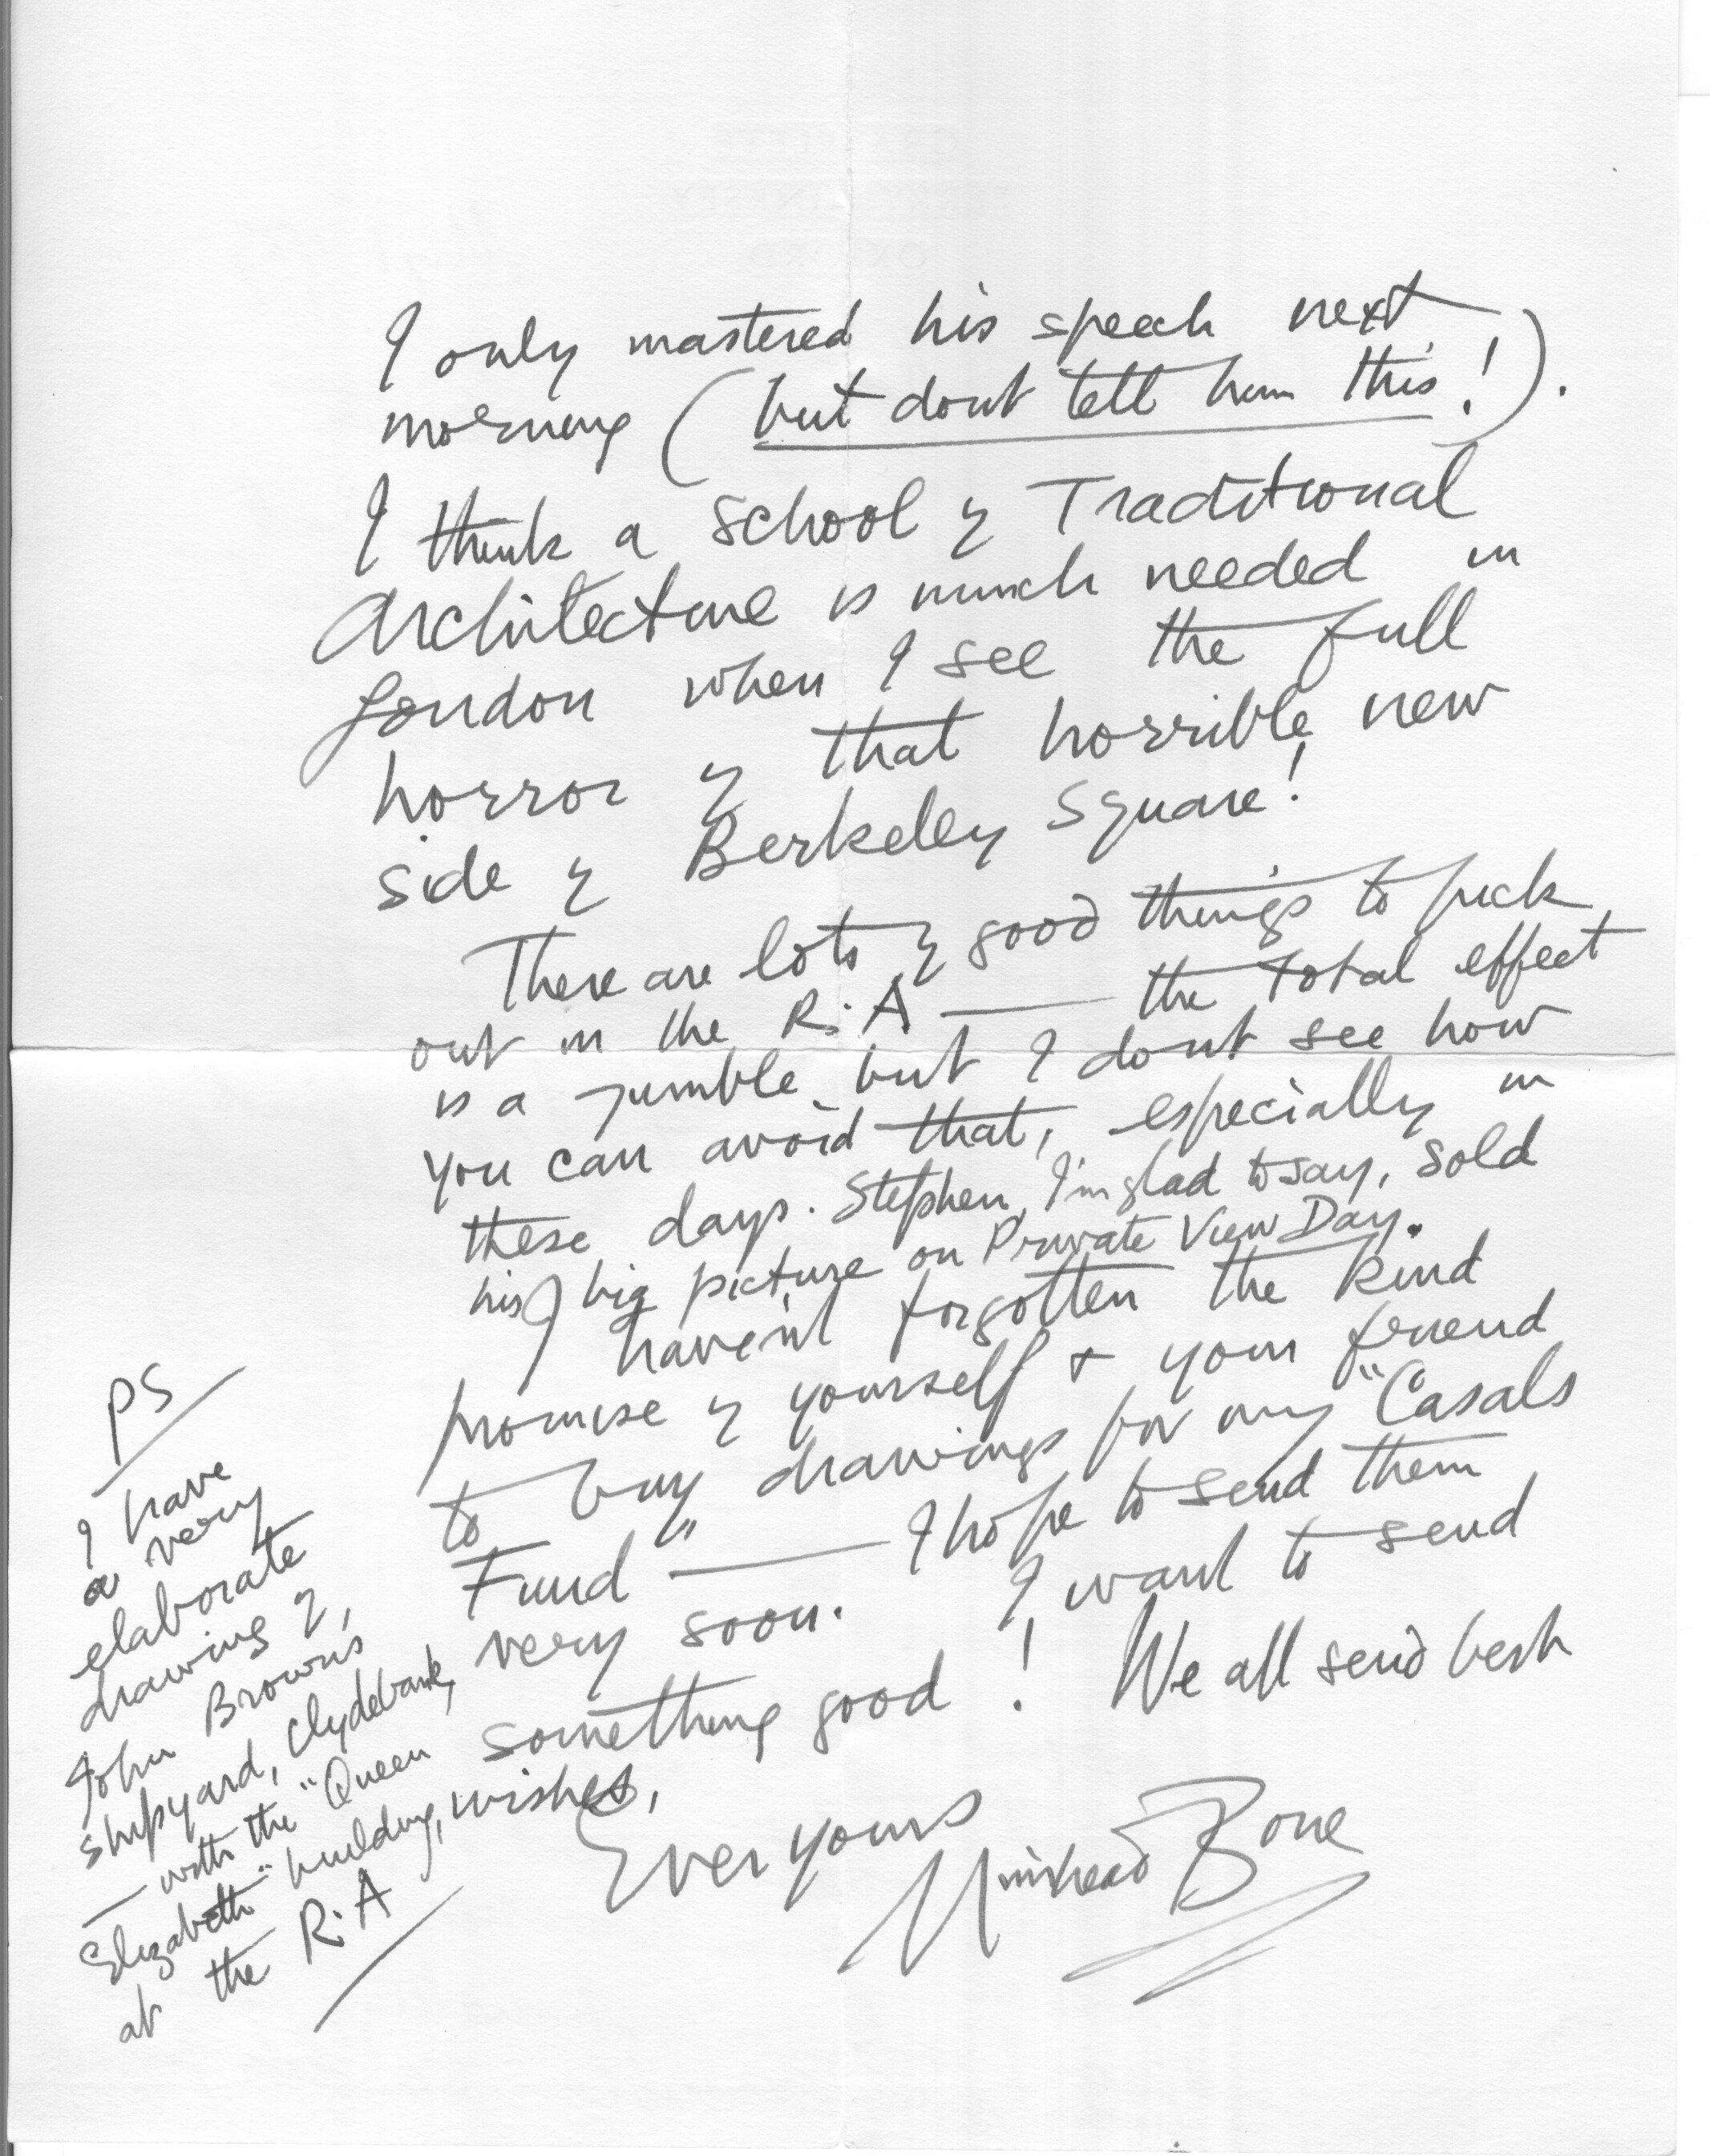 I only mastered his speech next
morning (but dont tell him this!).
I think a School of Traditional
Architecture is much needed in
London when I see the full
horror of that horrible new
side of Berkeley Square!
There are lots of good things to pick
out in the R.A — the total effect
is a jumble but I dont see how
you can avoid that, especially in
these days. Stephen, I'm glad to say, sold
his big picture on Private View Day.
I haven't forgotten the kind
promise of yourself + your friend
to buy drawings for my "Casals
Fund" — I hope to send them
very soon. I want to send
something good! We all send best
wishes,
Ever yours
Muirhead Bone
PS
I have
a very
elaborate
drawing of
John Brown's
shipyard, Clydebank,
— with the "Queen
Elizabeth" building,
at the R.A